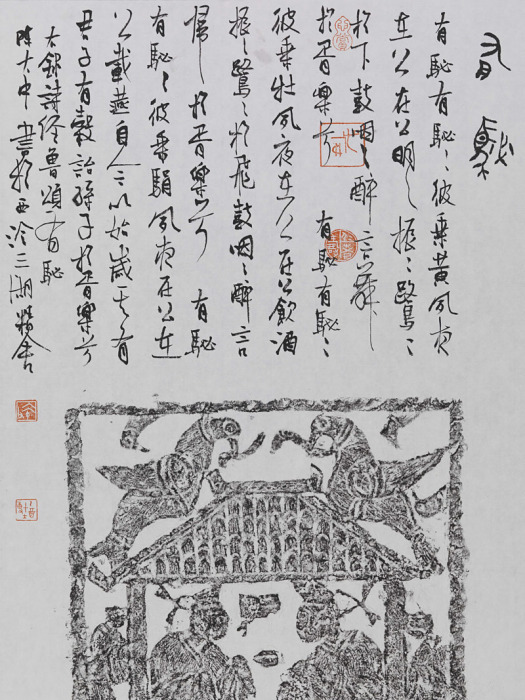 有駜
有駜有駜〻彼乘黄夙夜
在公在公明〻振〻鷺〻
於下鼓咽〻醉言舞
於胥樂兮 有駜有駜〻
彼乘牡夙夜在公在公飲酒
振〻鷺〻於飛鼓咽〻醉言
歸於胥樂兮 有駜
有駜〻彼乘駽夙夜在公在
公載燕自今以始歲其有
君子有穀詒孫子於胥樂兮
右錄詩經魯頌有駜
陳大中書於西泠三湖精舍